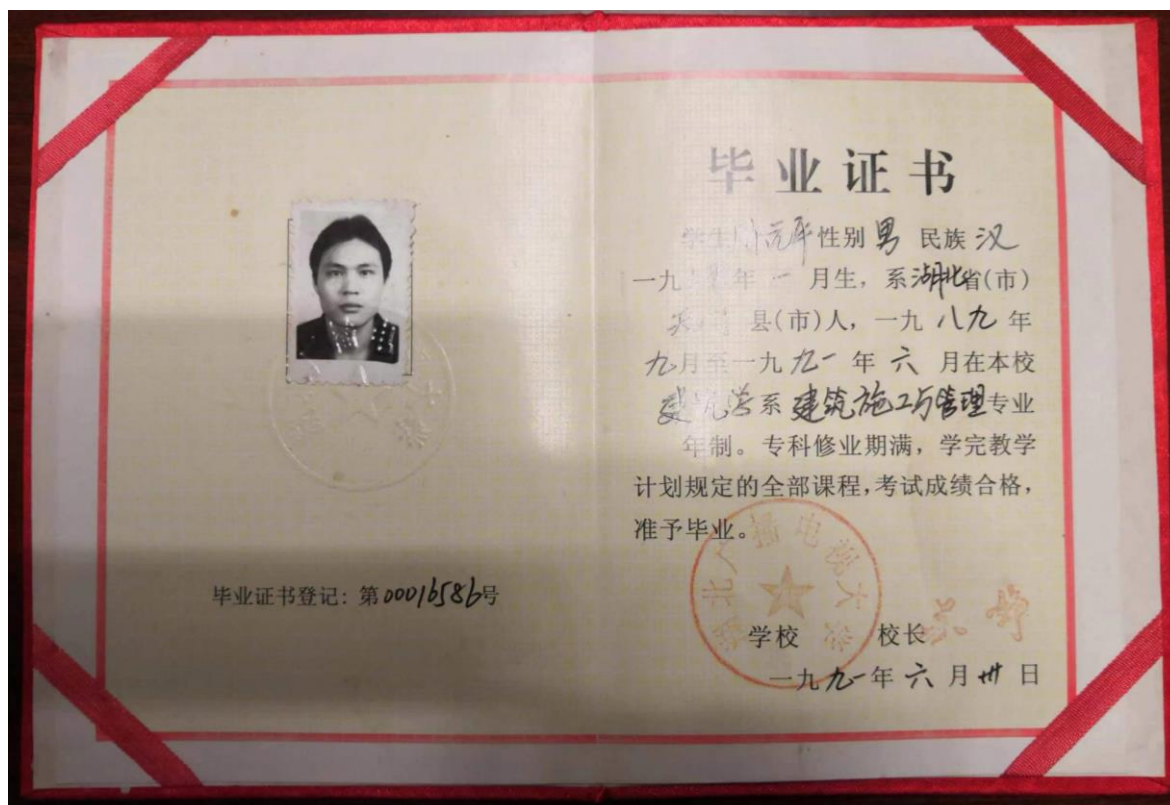 毕业证书
学生 性别 男 民族 汉
一九 年 一 月生，系湖北省(市)
县(市)人，一九 八九 年
九月至一九 九一 年 六 月在本校
系 建筑施工与管理专业
年制。专科修业期满，学完教学
计划规定的全部课程，考试成绩合格，
准予毕业。
湖北广播电视大学
学校 校长
一九 九一 年 六 月 卅 日
毕业证书登记：第00016586号